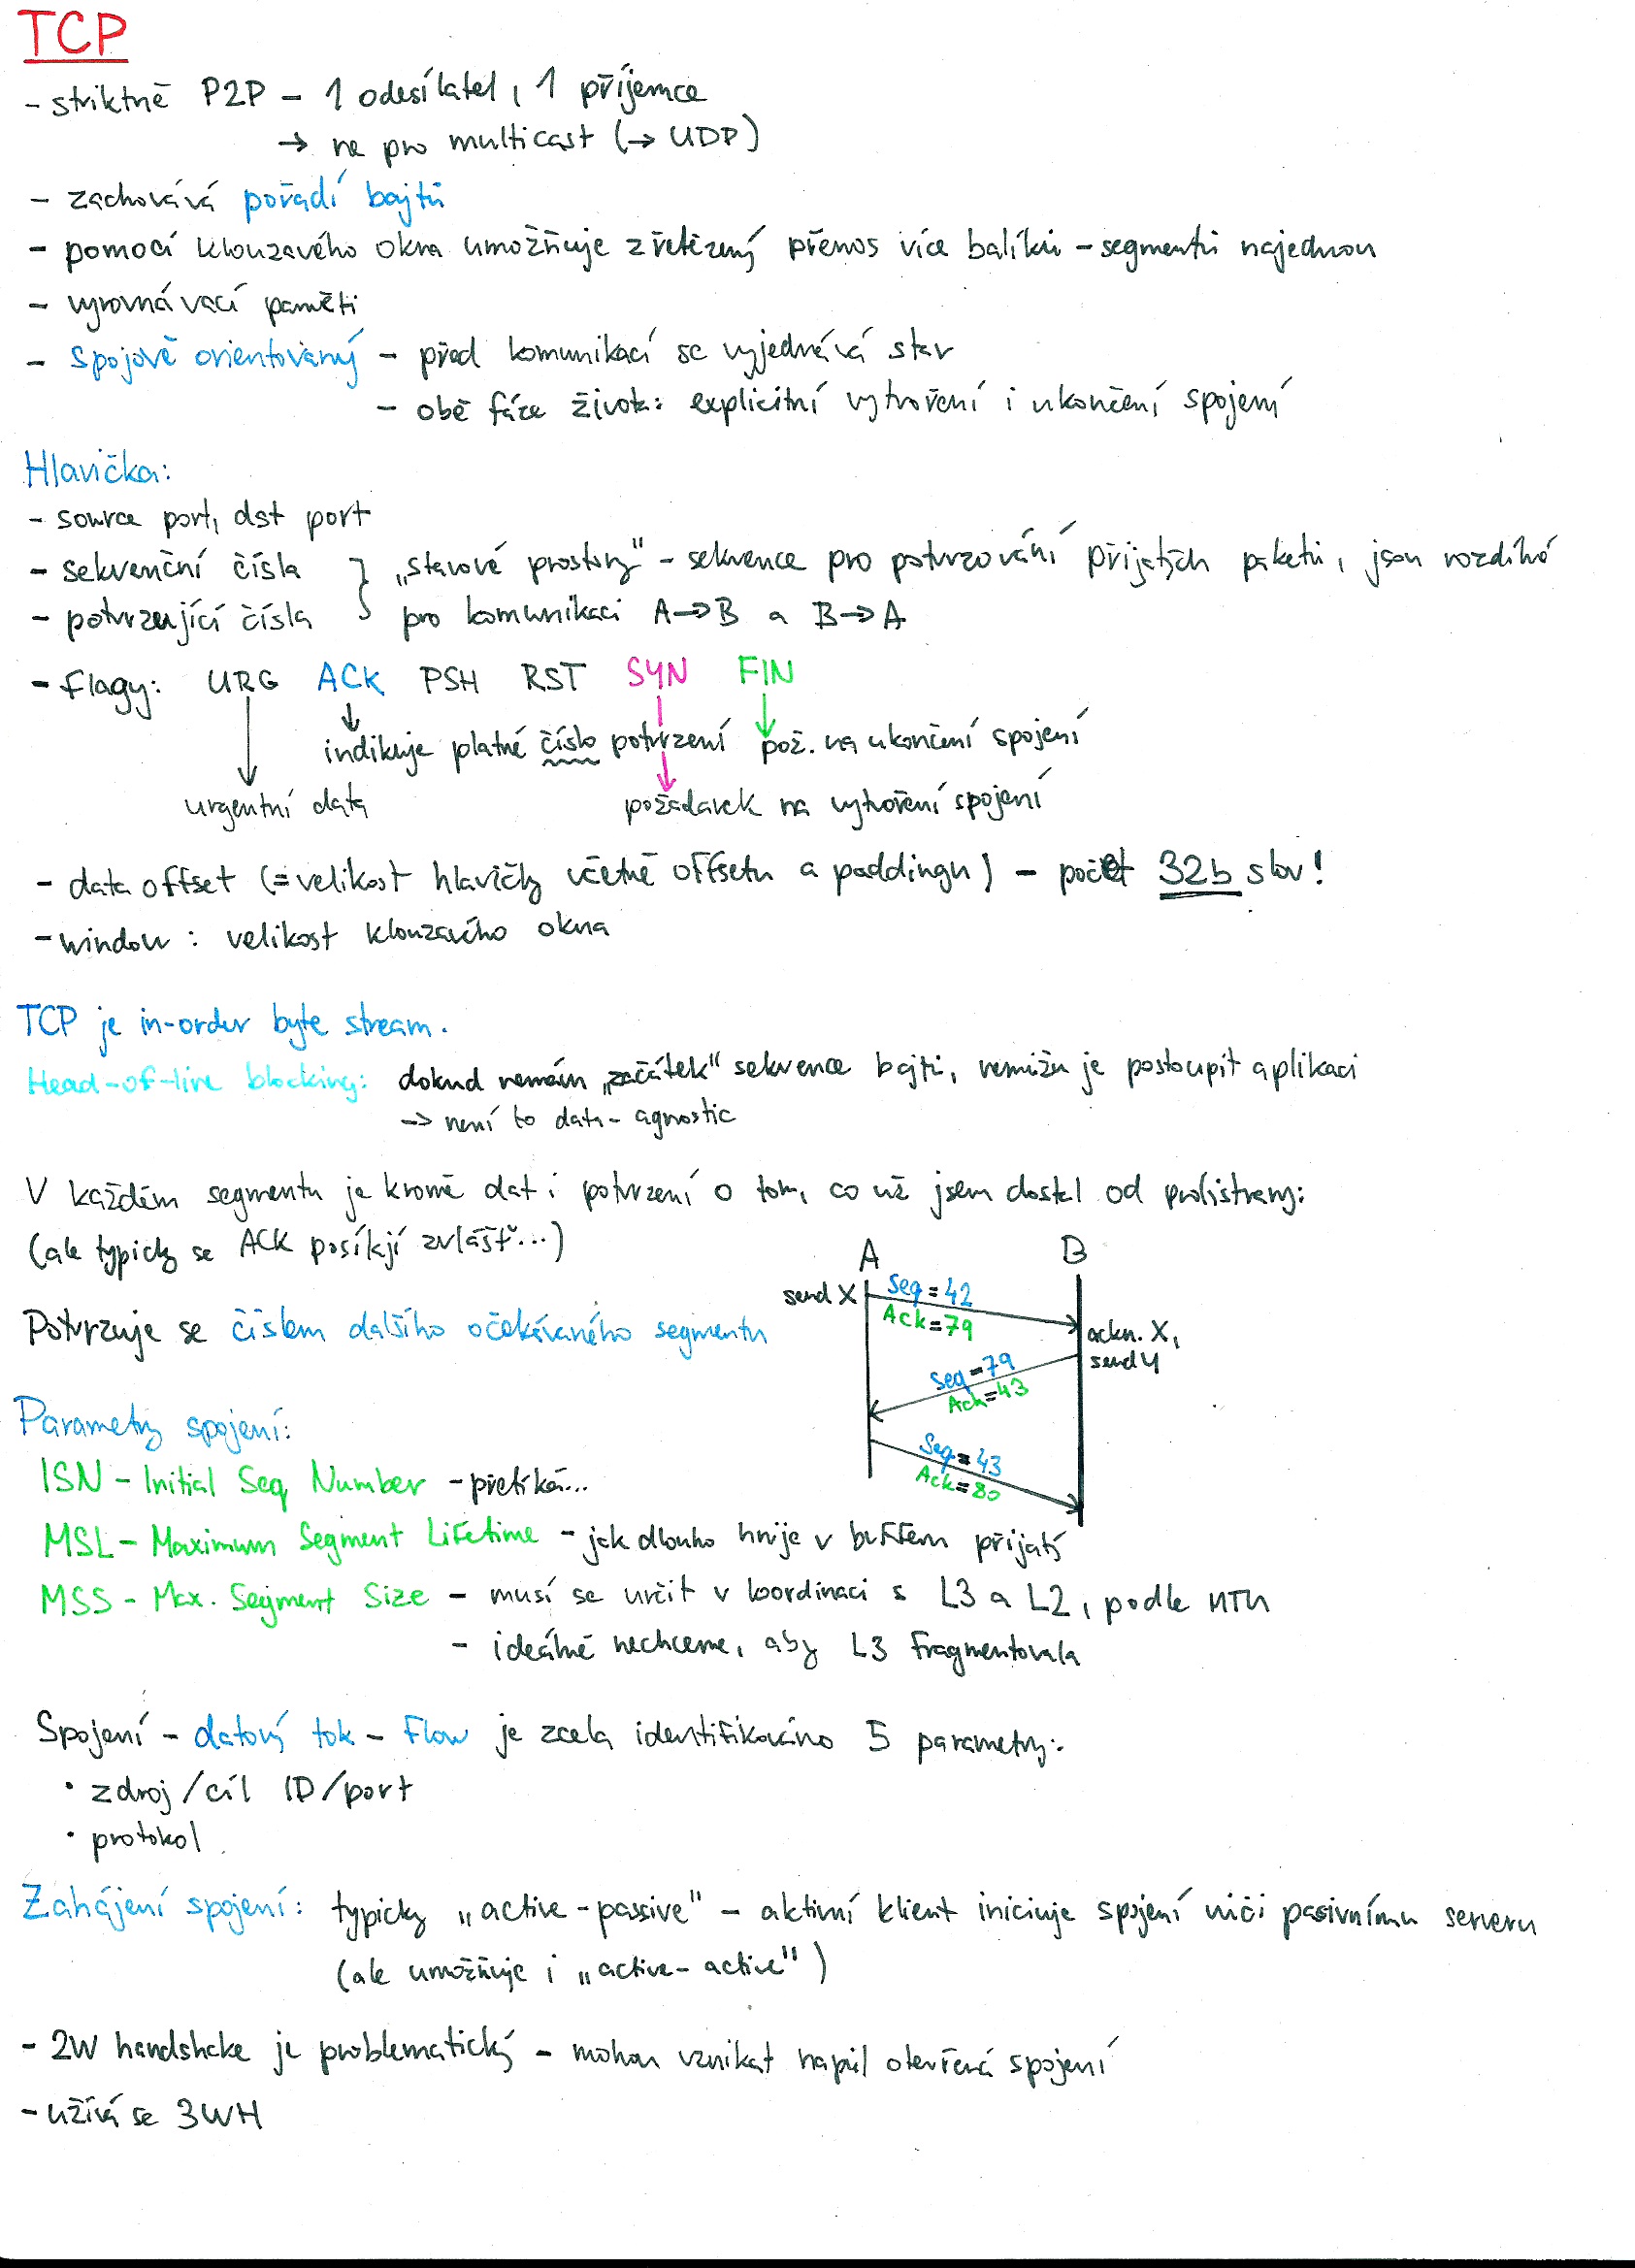 TCP
- striktně P2P - 1 odesílatel, 1 příjemce
→ ne pro multicast (→ UDP)
- zachovává pořadí bajtů
- pomocí klouzavého okna umožňuje zřetězený přenos více balíků - segmentů najednou
- vyrovnávací paměti
- spojově orientovaný - před komunikací se vyjednává stav
- obě fáze života: explicitní vytvoření i ukončení spojení
Hlavička:
- source port, dst port
- sekvenční čísla } „stavové prostory" - sekvence pro potvrzování přijatých paketů, jsou rozdílné
- potvrzující čísla pro komunikaci A→B a B→A
- flagy: URG ACK PSH RST SYN FIN
indikuje platné číslo potvrzení pož. na ukončení spojení
urgentní data požadavek na vytvoření spojení
- data offset (=velikost hlavičky včetně offsetu a paddingu) - počet 32b slov!
- window: velikost klouzavího okna
TCP je in-order byte stream.
Head-of-line blocking: dokud nemám „začátek" sekvence bajtů, nemůžu je postoupit aplikaci
-> není to data-agnostic
V každém segmentu je kromě dat i potvrzení o tom, co už jsem dostal od protistrany:
(ale typicky se ACK posílají zvlášť...)
Potvrzuje se číslem dalšího očekávaného segmentu
A B
send X Seq=42
Ack=79
ackn. X,
send Y
Seq=79
Ack=43
Seq=43
Ack=80
Parametry spojení:
ISN - Initial Seq Number - přetíká...
MSL - Maximum Segment Lifetime - jak dlouho hnije v bufferu přijatý
MSS - Max. Segment Size - musí se určit v koordinaci s L3 a L2, podle MTU
- ideálně nechceme, aby L3 fragmentovala
Spojení - datový tok - Flow je zcela identifikováno 5 parametry:
• zdroj/cíl ID/port
• protokol
Zahájení spojení: typicky „active-passive" - aktivní klient iniciuje spojení vůči pasivnímu serveru
(ale umožňuje i „active-active")
- 2W handshake je problematický - mohou vznikat napůl otevřená spojení
- užívá se 3WH